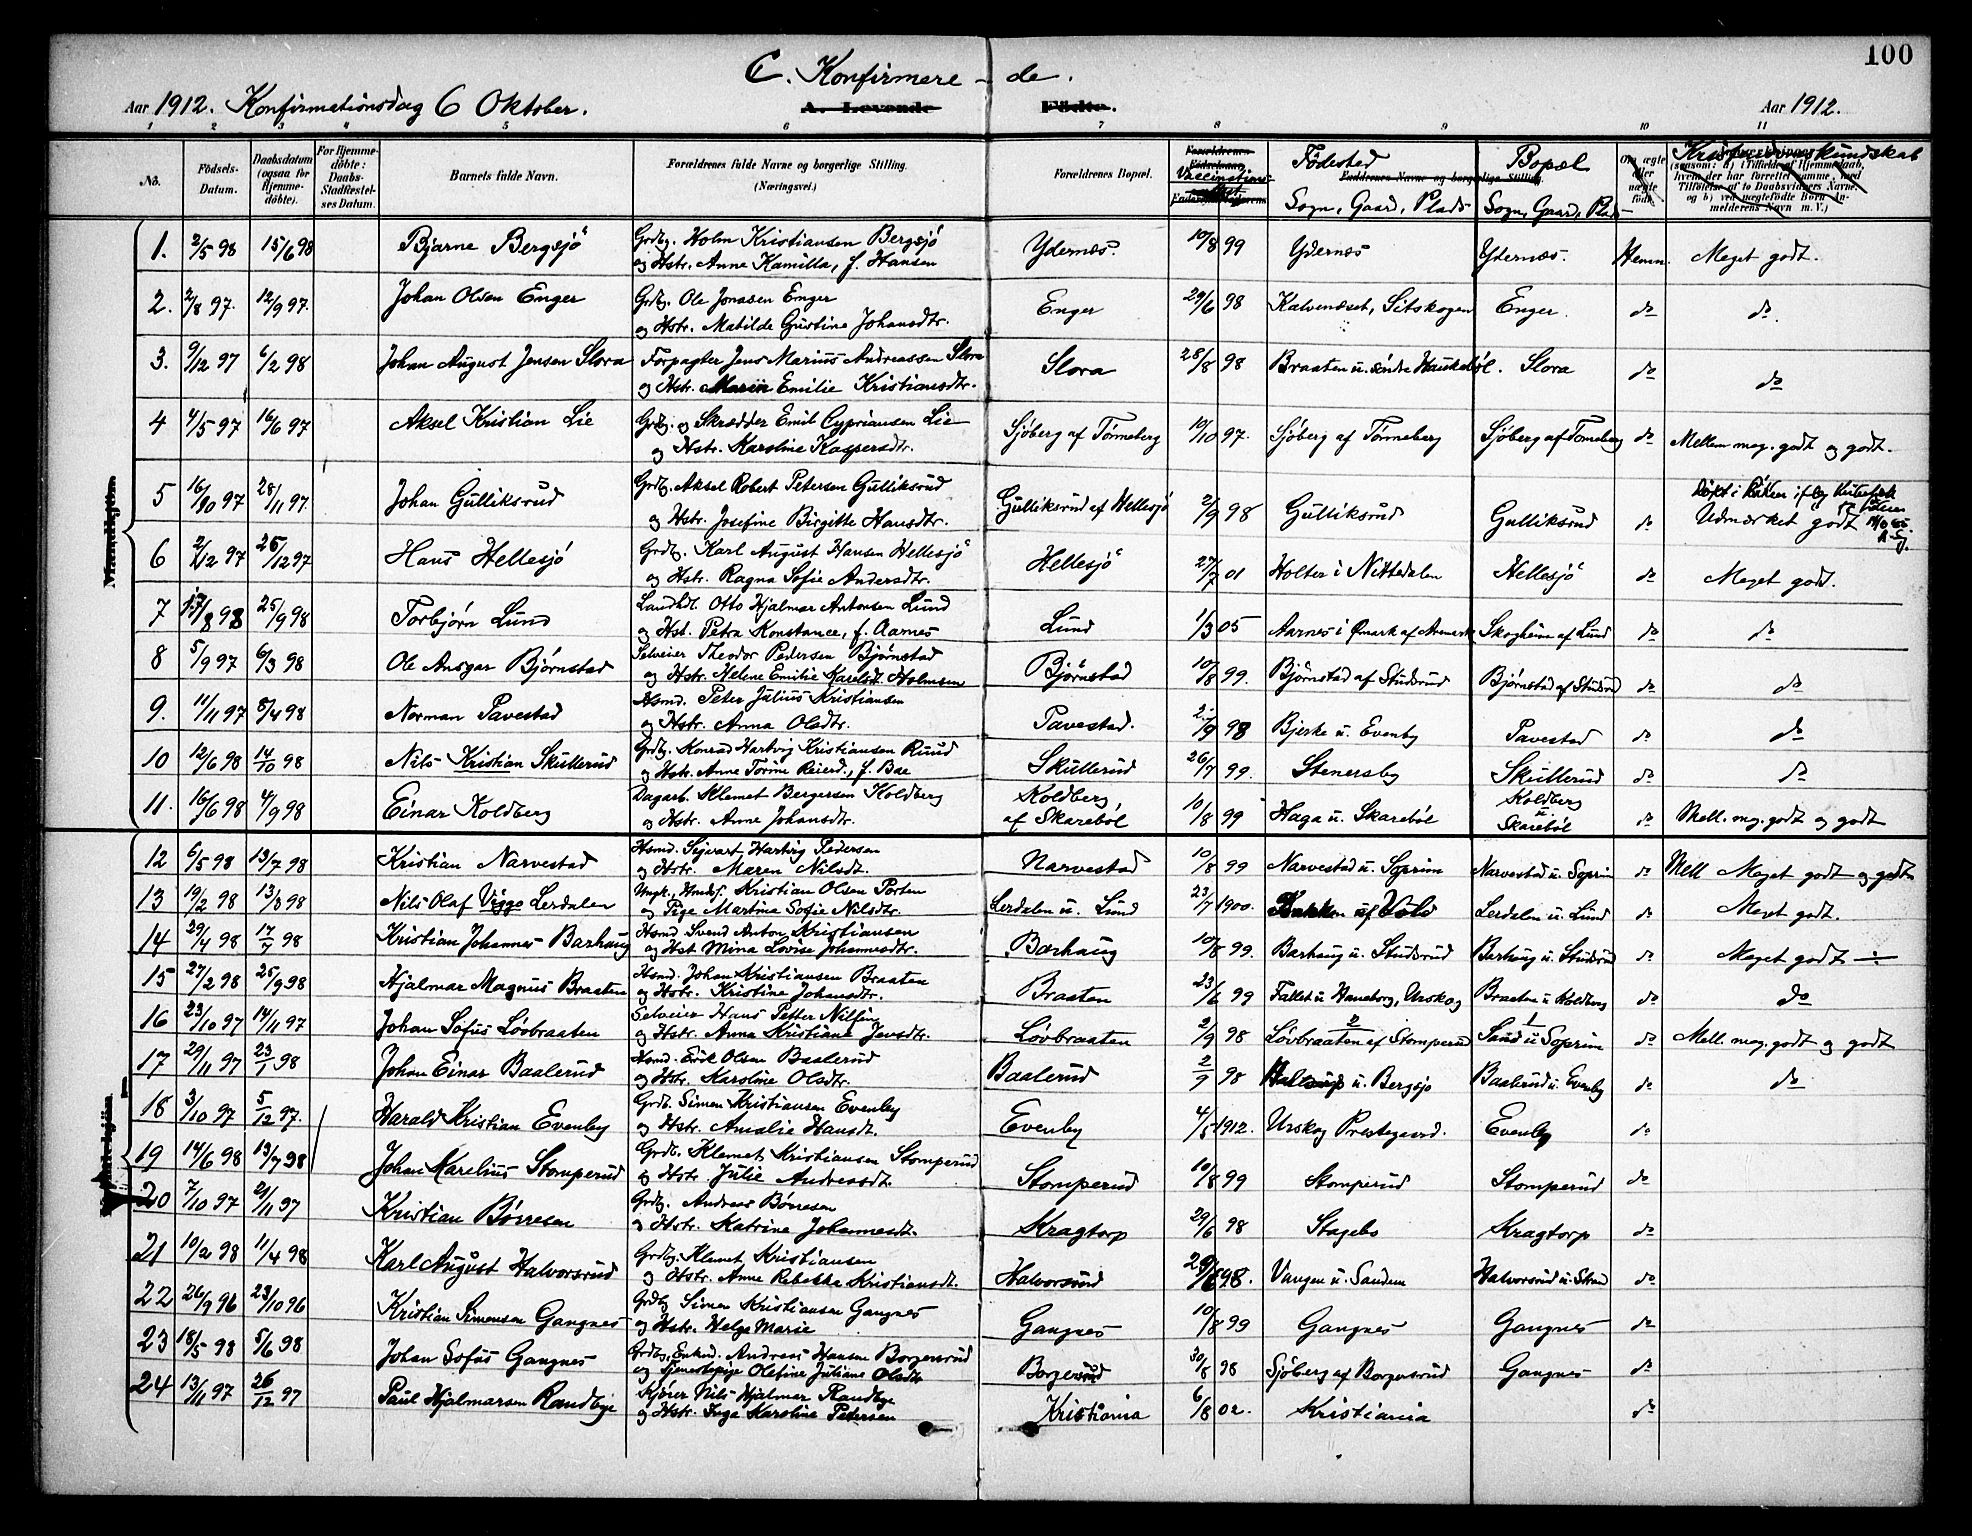 100
C. Konfirmere - de.
Aar 1912. Konfirmationsdag 6 Oktober. A. Levende Födte. Aar 1912.
1 2 3 4 5 6 7 8 9 10 11
No. Födsels-Datum. Daabsdatum (ogsaa for Hjemmedöbte). For Hjemmedöbte: Daabs-Stadfæstelses Datum. Barnets fulde Navn. Forældrenes fulde Navne og borgerlige Stilling. (Næringsvei.) Forældrenes Bopæl. Vaccinations- Födested Sogn, Gaard, Plads Bopæl Sogn, Gaard, Plads Om ægte eller uægte födt. Kristendomskundskab
Mandkjön
1. 2/5 98 15/6 98 Bjarne Bergsjö Grdbr. Holm Kristiansen Bergsjö Ydernæs. 10/8 99 Ydernæs Ydernæs. Hemn. Meget godt.
og Hstr. Anne Kamilla, f. Hansen
2. 2/8 97. 12/9 97. Johan Olsen Enger Grdbr. Ole Jonasen Enger Enger 29/6 98 Kalvenæset, Sitskogen Enger. do do.
og Hstr. Matilde Gustine Johansdtr.
3. 9/12 97 6/2 98 Johan August Jensen Slora Forpagter Jens Marius Andreassen Slora Slora 28/8 98 Braaten u. søndre Haukebøl. Slora do do
og Hstr. Marin Emilie Kristiansdtr.
4 4/5 97 16/6 97 Aksel Kristian Lie Grdbr. og Skrædder Emil Cypriansen Lie Sjöberg af Tørneberg 10/10 97. Sjöberg af Tørneberg Sjöberg af Tørneberg do Mellem meg. godt og godt.
og Hstr. Karoline Kaspersdtr.
5 16/10 97 28/11 97 Johan Gulliksrud Grdbr. Aksel Robert Petersen Gulliksrud Gulliksrud af Hellesjö 2/9 98 Gulliksrud Gulliksrud do Udmærket godt
og Hstr. Josefine Birgitte Hansdtr.
6 2/12 97 26/12 97 Hans Hellesjö Grdbr. Karl August Hansen Hellesjö Hellesjö 27/7 01 Holter i Nittedalen Hellesjö do Meget godt.
og Hstr. Ragna Sofie Andersdtr.
7 17/8 98 25/9 98 Torbjørn Lund Landhdl. Otto Hjalmar Antonsen Lund Lund 1/3 05 Aarnes i Ømark af Aremark Skogheim af Lund do do
og Hst. Petra Konstance, f. Aarnes
8 5/9 97 6/3 98 Ole Ansgar Bjørnstad Selveier Theodor Pedersen Bjørnstad Bjørnstad 10/8 99. Bjørnstad af Studsrud Bjørnstad af Studsrud do do
og Hstr. Helene Emilie Karelsdt. Holmsen
9. 11/11 97 8/4 98 Norman Pavestad Hsmd. Peter Julius Kristiansen Pavestad. 2/9 98 Bjerke u. Evenby Pavestad do do
og Hstr. Anna Olsdtr.
10 12/6 98 14/10 98 Nils Kristian Skullerud Grdbr. Konrad Hartvig Kristiansen Ruud Skullerud 26/7 99. Stenersby Skullerud do do
og Hstr. Anne Torine Reierd., f. Bae
11. 16/6 98 4/9 98 Einar Koldberg Dagarb. Klemet Bergersen Koldberg Koldberg af Skarebøl 10/8 99 Haga u. Skarebøl Koldberg u. Skarebøl do Mell. mg. godt og godt
og Hstr. Anne Johansdtr.
12 6/5 98 13/7 98 Kristian Narvestad Hsmd. Sigvart Hartvig Pedersen Narvestad 10/8 99 Narvestad u. Soprim Narvestad u. Soprim do Mell Meget godt og godt
og Hstr. Maren Nilsdt.
13 19/2 98 13/8 98 Nils Olaf Viggo Lerdalen Ungk., Kristian Olsen Porten Lerdalen u. Lund 23/7 1900. Bakken af Vold Lerdalen u. Lund do Meget godt.
og Pige Martina Sofie Nilsdtr.
14 29/4 98 17/7 98 Kristian Johannes Barhaug Hsmd Svend Anton Kristiansen Barhaug 10/8 99. Barhaug u. Studsrud Barhaug u. Studsrud do Meget godt ÷
og Hst Mina Lovise Johannesdtr.
15 27/2 98 25/9 98 Hjalmar Magnus Braaten Hsmd. Johan Kristiansen Braaten Braaten 23/6 99 Fallet u Haneborg, Urskog Braaten u Koldberg do do
og Hstr. Kristine Johansdtr.
16 23/10 97 14/11 97 Johan Sofus Løvbraaten Selveier Hans Petter Nilsen Løvbraaten 2/9 98 Løvbraaten af Stomperud Sand u Soprim do Mell. meg. godt og godt
og Hstr. Anna Kristiane Jensdtr.
17 29/11 97 23/1 98 Johan Einar Baalerud Hsmd. Erik Olsen Baalerud Baalerud 2/9 98 u. Bergsjø Baalerud u. Evenby do do
og Hstr. Karoline Olsdtr.
18 3/10 97 5/12 97. Harald Kristian Evenby Grdb. Simen Kristiansen Evenby Evenby 4/5 1912. Urskog Prestegaard. Evenby do
og Hstr. Amalie Hansdt.
19 14/6 98 13/7 98 Johan Marelius Stomperud Grdbr. Klemet Kristiansen Stomperud Stomperud 10/8 99 Stomperud Stomperud do
og Hstr Julie Andreasdt.
20 7/10 97 21/11 97 Kristian Børresen Grdbr. Andreas Børresen Kragtorp 29/6 98 Stagebo Kragtorp do
og Hstr. Katrine Johannesdt.
21 10/2 98 11/4 98 Karl August Halvorsrud Grdbr. Klemet Kristiansen Halvorsrud 29/6 98. Vangen u. Sandem Halvorsrud u. do
og Hstr. Anne Rebekka Kristiansdt.
22 26/9 96 23/10 96 Kristian Simensen Gangnes Grdbr Simen Kristiansen Gangnes Gangnes 10/8 99 Gangnes Gangnes do
og Hstr. Helga Marie
23 18/5 98 5/6 98 Johan Sofus Gangnes Grdbr, Enkmd. Andreas Hansen Borgersrud Borgersrud 30/8 98 Sjöberg af Borgersrud Gangnes do
og Tjenestepige Olefine Juliane Olsdtr
24 13/11 97 26/12 97 Paul Hjalmarsen Randbye Kjører Nils Hjalmar Randbye Kristiania 6/8 02. Kristiania do
og Hstr. Inga Karoline Petersen